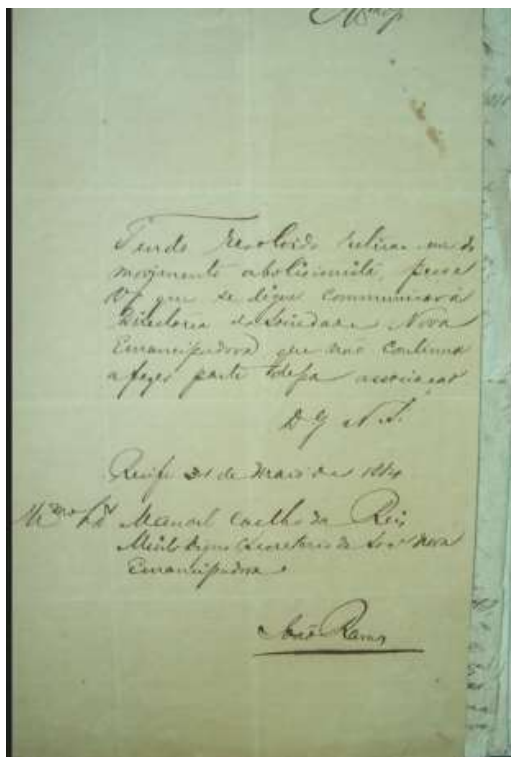 Tendo resolvido retirar-me do
movimento abolicionista, peço a
V. S. que se digne communicar á
Directoria da Sociedade Nova
Emancipadora que não continuo
a fazer parte dessa associação
D. G. a V. S.
Recife 31 de Maio de 1884
Illmo Sr Manoel Coelho dos Reis
Muito digno Secretario da Soc Nova
Emancipadora.
João Ramos